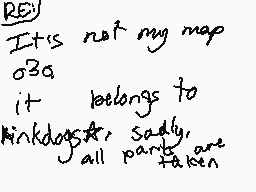 RE:
It's not my map
o3o
it belongs to
kinkdogs☆, sadly,
all parts are
taken